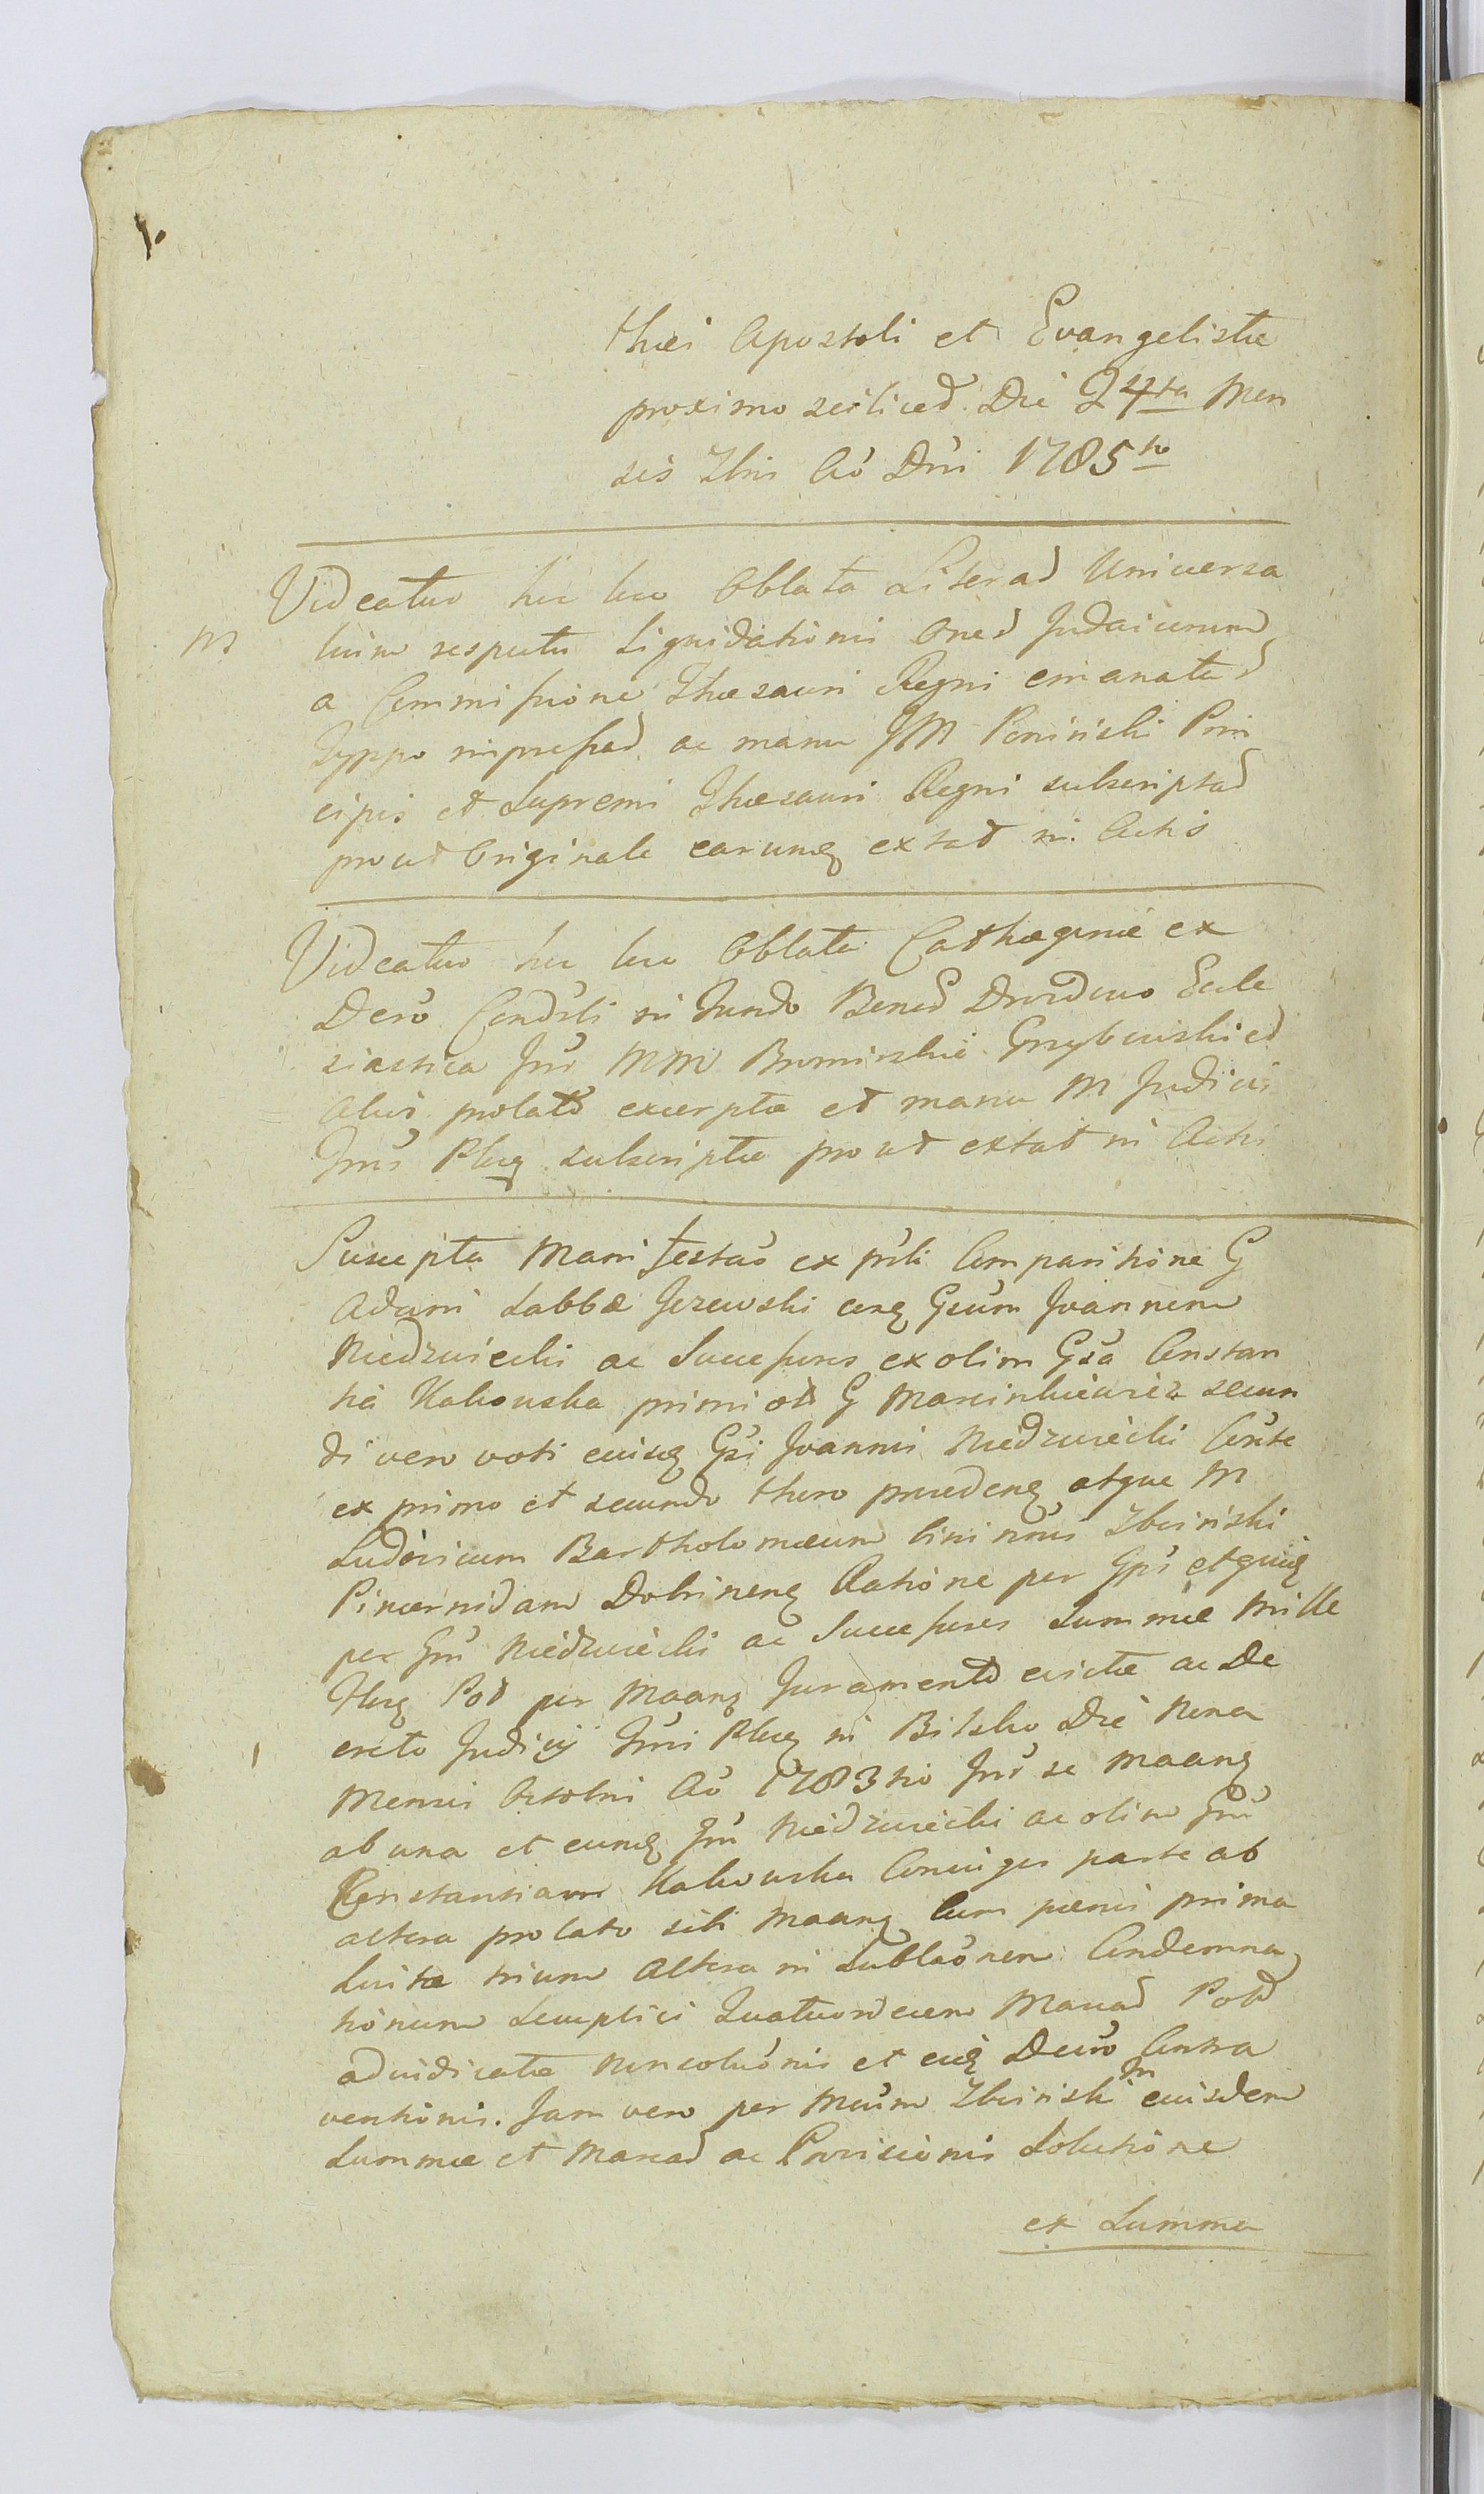 thæi Apostoli et Evangelistæ
proximo scilicet Die 24ta Men
sis 7bris Aõ Dni 1785to
Videatur hic loco Oblata Literad Universa
M
lium respectu Liquidationis Oned Judaicorum
a Commissione Thesauri Regni emanatad
Typpo impressad ac manu JM Poniński Prin
cipis et Supremi Thesauri Regni subscriptad
prout Originale earumq extat in Actis
Videatur hic loco Oblata Cathægoriæ ex
Decrõ Condesli in fundo Bened
siastica Inr MM Bromirskie Grzybowskied
Aliis prolatõ excerptæ et manu M Judicis
Plug subscriptæ prout extat in Actis
Suscepta Manifestaõ ex prsti Comparitione G
Adami Labbæ Jezewski cong Gsum Joannem
Niedzwiecki ac Successores ex olim Gsa Constan
tia Kakowska primi otd G Marcinkiewicz secun
di vero voti eiusq Gsi Joannis Niedzwiecki Conste
ex primo et secundo thoro procedeng atque M
Ludovicum Bartholomæum bini nõuis Zboinski
Pincernidam Dobrineng Ratione per Gps etquiq
per Gm Niedzwiecki ac Successores Summæ Mille
flug Pod per Maang Juramentõ evictæ ac De
creto Judicij Plug in Bilsko Die Nona
Mensis Octobris Aõ 1783tio Inr se Maang
ab una et eumq Gm Niedzwiecki ac olim Gm
Constantiam Kakowska Coniuges parte ab
altera prolato sibi Maang Cum pænis prima
Luitæ trium Altera in Sublaõnem Condemna
tionum Scuplici Quatuordecem Marcad Pold
adiudicatæ Nonsoluõnis et eiusq Decrõ Contra
ventionis. Jam vero per Mcum Zboinski in eiusdem
Summæ et Marcad ac Provisionis Solutione
ex Summa